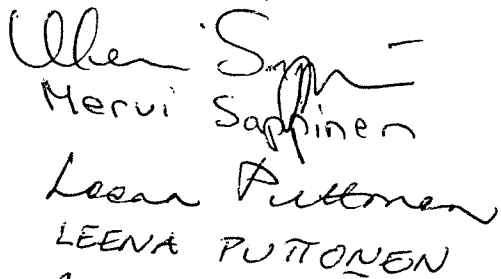 Mervi Sappinen
Leena Puttonen
LEENA PUTTONEN